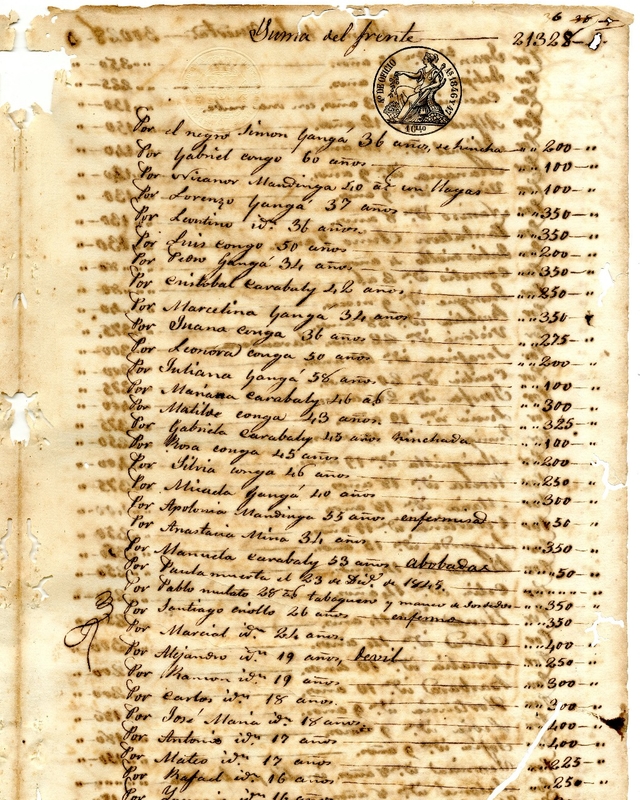 36
Suma del frente 21328
Sº DE OFICIO AS 1846 Y 47
Por el negro Simon Gangá 36 años, se hincha " " 200 — "
Por Gabriel congo 60 años " " 100 — "
Por Nicanor Mandinga 40 aś con llagas " " 100 — "
Por Lorenzo Gangá 37 años " " 350 — "
Por Leontino idⁿ 36 años. " " 350 — "
Por Luis congo 50 años " " 200 — "
Por Pedro Gangá 34 años " " 350 — "
Por Cristobal Carabaly 42 años " " 250 — "
Por Marcelina Ganga 34 años " " 350 — "
Por Juana conga 36 años " " 275 — "
Por Leonora conga 50 años " " 200 — "
Por Juliana Gangá 58 años " " 100 — "
Por Mariana Carabaly 46 aś " " 300 — "
Por Matilde conga 43 años. " " 325 — "
Por Gabriela Carabaly 45 años hinchada " " 100 — "
Por Rosa conga 45 años " " 200 — "
Por Silvia conga 46 años " " 250 — "
Por Micaela Gangá 40 años " " 300 — "
Por Apolonia Mandinga 55 años enfermisa " " 50 — "
Por Anastacia Mina 34 años " " 350 — "
Por Manuela Carabaly 53 años abobadas " " 50 — "
Por Paula muerta el 23 de Dicᵉ de 1845. " " " " "
Por Pablo mulato 28 aś tabaquero y manco de " " 350 — "
Por Santiago criollo 26 años enfermo " " 350 — "
Por Marcial idⁿ 24 años. " " 400 — "
Por Alejandro idⁿ 19 años, devil " " 250 — "
Por Ramon idⁿ 19 años " " 300 — "
Por Carlos idⁿ 18 años. " " 300 — "
Por José Maria idⁿ 18 años " " 400 — "
Por Antonio idⁿ 17 años " " 400 — "
Por Mateo idⁿ 17 años " " 225 — "
Por Rafael idⁿ 16 años " " 250 — "
Por idⁿ 16 años